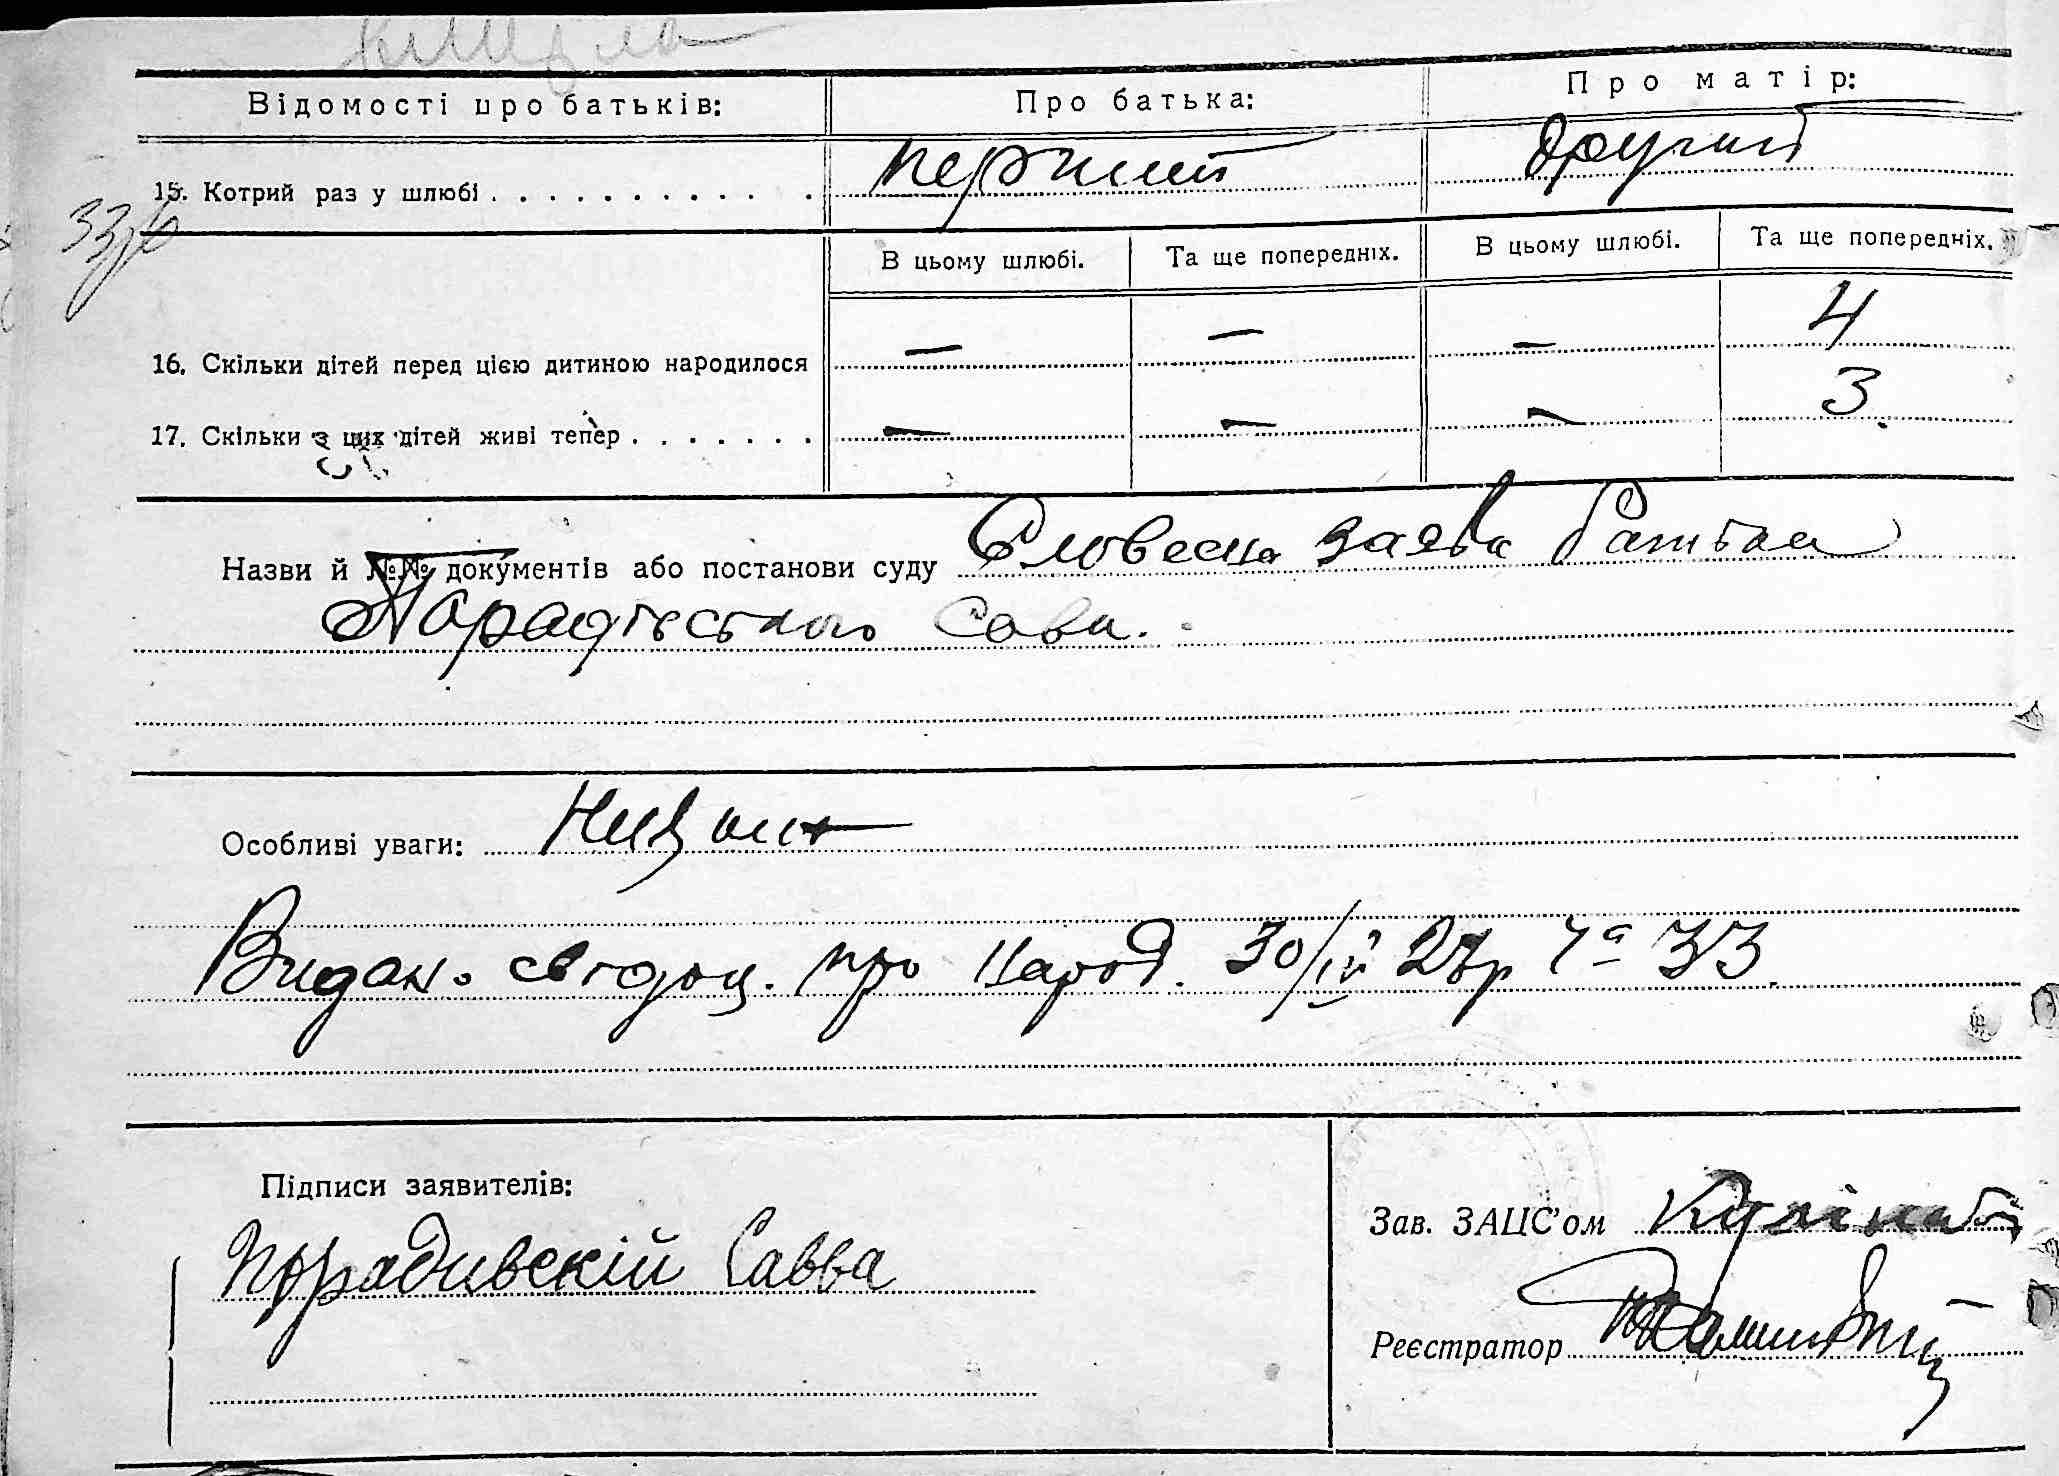 Відомості про батьків: Про батька: Про матір:
15. Котрий раз у шлюбі перший другий
В цьому шлюбі. Та ще попередніх. В цьому шлюбі. Та ще попередніх.
16. Скільки дітей перед цією дитиною народилося — — — 4
17. Скільки з цих дітей живі тепер — — — 3
Назви й №№ документів або постанови суду Словесна заява батька
Парадівського Сави.
Особливі уваги:
Видан. свідоц. про народ. 30/IV 27р ча 33
Підписи заявителів:
Зав. ЗАЦС'ом
Парадивскій Савва
Реєстратор